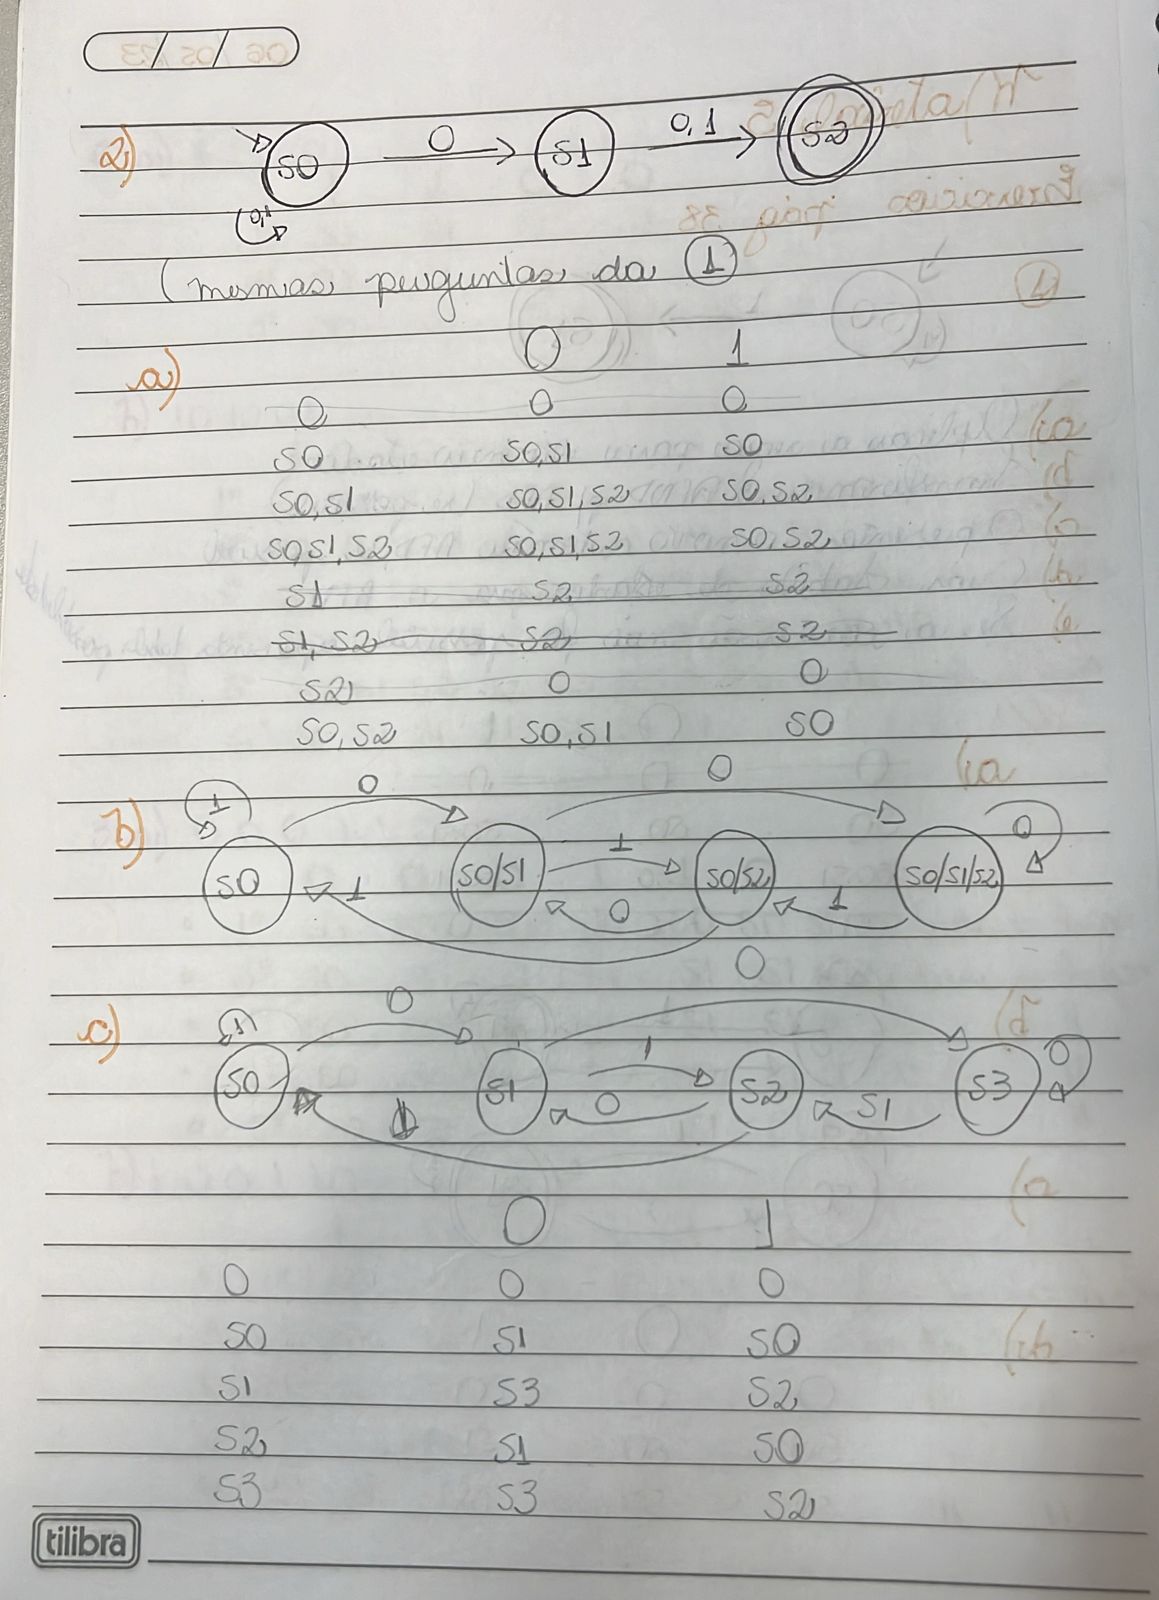 2)
S0 0 S1 0,1 S2
0,1
(mesmas perguntas da 1)
a) 0 1
0 0 0
S0 S0,S1 S0
S0,S1 S0,S1,S2 S0,S2
S0,S1,S2 S0,S1,S2 S0,S2
S1 S2 S2
S1,S2 S2 S2
S2 0 0
S0,S2 S0,S1 S0
b) 1 0 0 0
S0 S0/S1 1 S0/S2 S0/S1/S2
1 0 1
0
c) 1 0 1 0
S0 S1 S2 S3
1 0 S1
0 1
0 0 0
S0 S1 S0
S1 S3 S2
S2 S1 S0
S3 S3 S2
tilibra